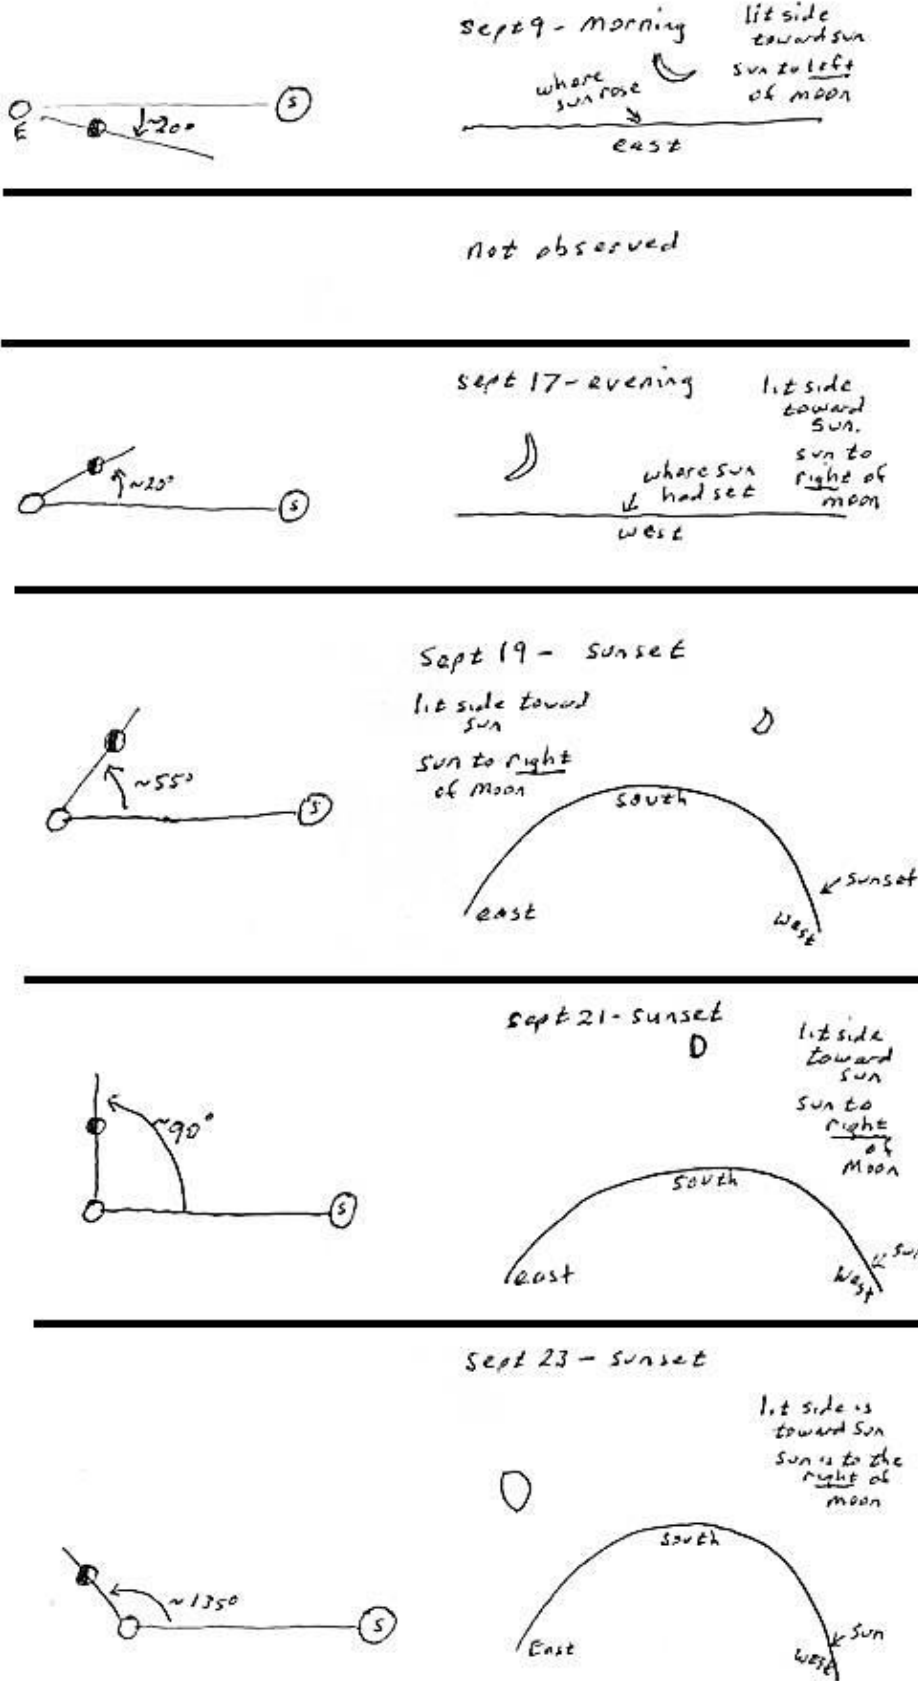 Sept 9 - Morning
lit side
toward sun
sun to left
of moon
where
sun rose
east
E
~20°
S
not observed
sept 17 - evening
lit side
toward
sun.
sun to
right of
moon
where sun
had set
west
~20°
S
Sept 19 - sunset
lit side toward
sun
sun to right
of moon
south
east
west
sunset
~55°
S
sept 21 - sunset
lit side
toward
sun
sun to
right
of
moon
south
east
west
sun
~90°
S
sept 23 - sunset
lit side is
toward sun
sun is to the
right of
moon
south
East
west
sun
~135°
S